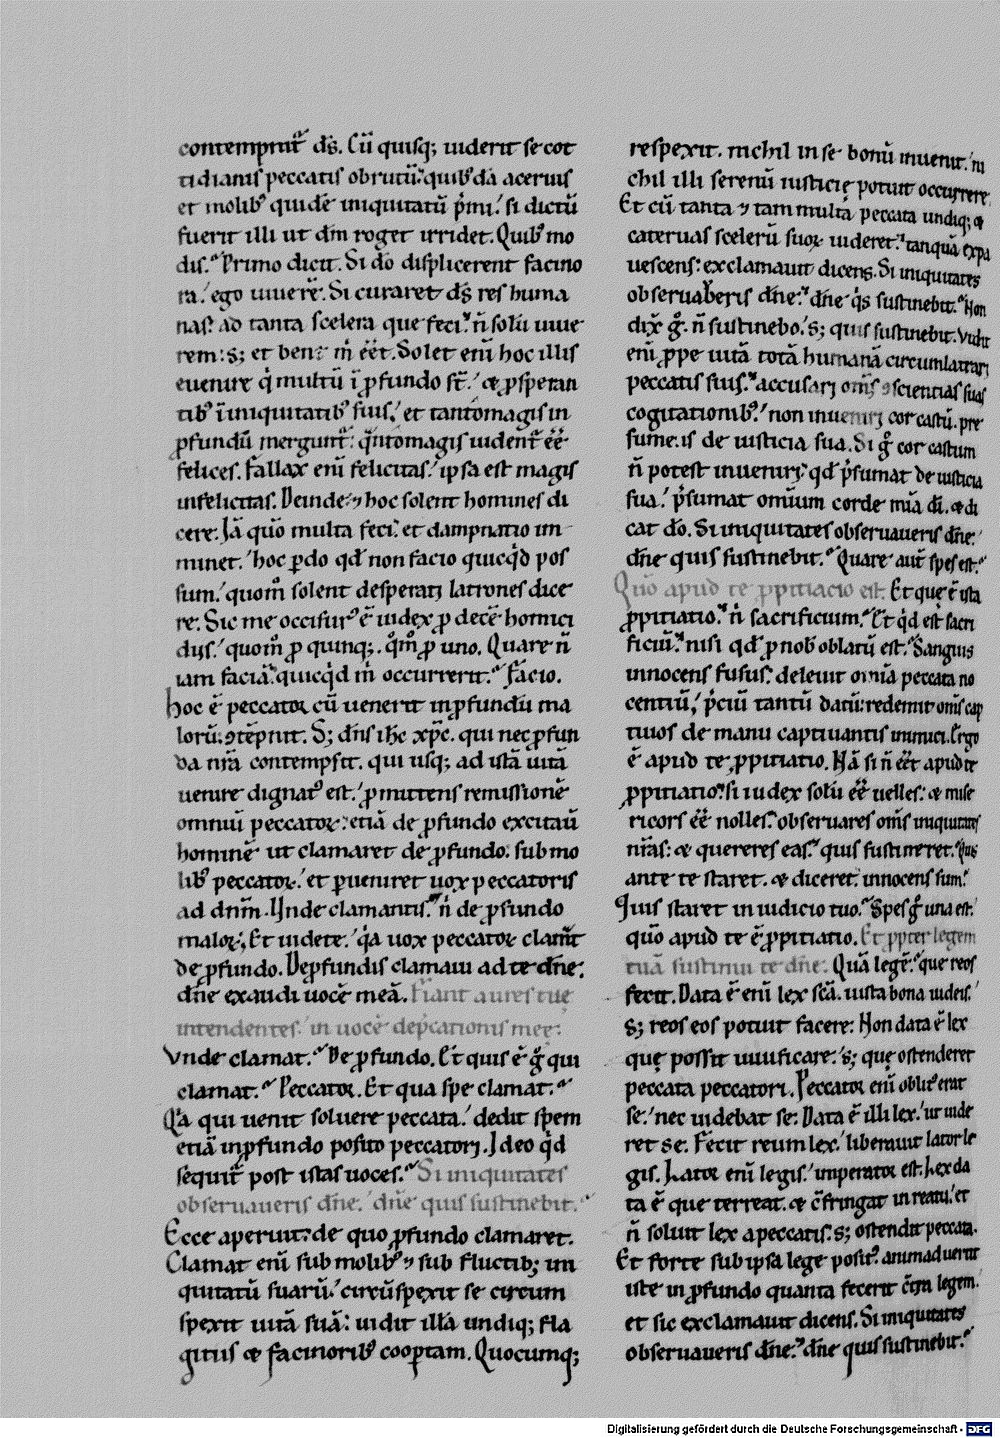 contempnit͛ ds̄. Cū quisq; uiderit se cot
tidianis peccatis obrutū: quibꝰdā aceruis
et molibꝰ quidē iniquitatū p̄mi. si dictū
fuerit illi ut dm̄ roget irridet. Quibꝰ mo
dis. Primo dicit. Si dō displicerent facino
ra. ego uiuerē. Si curaret ds̄ res huma
nas. ad tanta scelera que feci. n̄ solū uiue
rem: s; et bene m̄ eēt. Solet enī hoc illis
euenire q̇ multū ī ꝓfundo st̄. ⁊ ꝓsperan
tibꝰ ī iniquitatibꝰ suis. et tantomagis in
ꝓfundū mergunt͛. q̄ntomagis uident͛ eē
felices. Fallax enī felicitas. ipsa est magis
infelicitas. Deinde ⁊ hoc solent homines di
cere. Iā quō multa feci. et dampnatio im
minet. hoc ꝑdo qd̄ non facio quicq̇d pos
sum. quom̄ solent desperati latrones dice
re. Sic me occisurꝰ ē iudex ꝓ decē homici
diis. quom̄ ꝓ quinq;. q̄m̄ ꝓ uno. Quare n̄
iam faciā. quicq̇d m̄ occurrerit. Facio.
Hoc ē peccator cū uenerit in ꝓfundū ma
lorū. ꝯtēpnit. S; dn̄s ihc̄ xp̄c. qui nec ꝓfun
da nr̄a contempsit. qui usq; ad istā uitā
uenire dignatꝰ est. ꝓmittens remissionē
omniū peccatoꝝ: etiā de ꝓfundo excitau̅
hominē ut clamaret de ꝓfundo. sub mo
libꝰ peccatoꝝ. et ꝑueniret uox peccatoris
ad dnm̄. Unde clamantis. n̄ de ꝓfundo
maloꝝ. Et uidete. q̇a uox peccatoꝝ clamat
de ꝓfundo. De ꝓfundis clamaui ad te dn̄e.
dn̄e exaudi uocē meā. Fiant aures tue
intendentes. in uocē dep̄cationis meę:
Vnde clamat. De ꝓfundo. Et quis ē g̊ qui
clamat. Peccator. Et qua spe clamat.
Q̇a qui uenit soluere peccata. dedit spem
etiā in ꝓfundo posito peccatori. Ideo q̇d
sequit͛ post istas uoces. Si iniquitates
obseruaueris dn̄e. dn̄e quis sustinebit.
Ecce aperuit. de quo ꝓfundo clamaret.
Clamat enī sub molibꝰ ⁊ sub fluctib; ini
quitatū suarū. circūspexit se circum
spexit uitā suā: uidit illā undiq; fla
gitiis ⁊ facinoribꝰ coopertam. Quocumq;
respexit. nichil in se bonū inuenit. ni
chil illi serenū iusticię potuit occurrere.
Et cū tanta ⁊ tam multa peccata undiq; ⁊
cateruas scelerū suoꝝ uideret. tanquā expa
uescens: exclamauit dicens. Si iniquitates
obseruaberis dn̄e. dn̄e q̇s sustinebit. Non
dix̄ g̊. n̄ sustinebo. s; quis sustinebit. Vidit
enī ꝓpe uitā totā humanā circumlatrari
peccatis suis. accusari om̄s ꝯscientias suas
cogitationibꝰ. non inueniri cor castū. pre
sume. is de iusticia sua. Si g̊ cor castum
n̄ potest inueniri. qd̄ p̄sumat de iusticia
sua. p̄sumat omnium corde mīa dī. ⁊ di
cat dō. Si iniquitates obseruaueris dn̄e.
dn̄e quis sustinebit. Quare aut̄ spes est.
Quō apud te ꝓpitiacio est. Et quę ē ista
ꝓpitiatio. n̄ sacrificium. Et q̇d est sacri
ficiū. nisi qd̄ ꝓ nob̄ oblatū est. Sanguis
innocens fusus. deleuit omnia peccata no
centiū. p̄ciū tantū datū. redemit om̄s cap
tiuos de manu captiuantis inimici. Ergo
ē apud te ꝓpitiatio. Nā si n̄ eēt apud te
ꝓpitiatio. si iudex solū eē uelles. ⁊ mise
ricors eē nolles. obseruares om̄s iniquitates
nr̄as: ⁊ quereres eas. quis sustineret. Quis
ante te staret. ⁊ diceret. innocens sum.
Quis staret in iudicio tuo. Spes g̊ una est.
quō apud te ē ꝓpitiatio. Et ꝓpter legem
tuā sustinui te dn̄e. Quā legē. que reos
fecit. Data ē enī lex sc̄a. iusta bona iudeis.
s; reos eos potuit facere. Non data ē lex
quę possit uiuificare. s; quę ostenderet
peccata peccatori. Peccator enī oblitꝰ erat
se. nec uidebat se. Data ē illi lex. ut uide
ret se. Fecit reum lex. liberauit lator le
gis. Lator enī legis. imperator est. Lex da
ta ē que terreat. ⁊ c̄fringat in reatu. et
n̄ soluit lex a peccatis. s; ostendit peccata.
Et forte sub ipsa lege positꝰ. animaduertit
iste in ꝓfundo quanta fecerit c̄tra legem.
et sic exclamauit dicens. Si iniquitates
obseruaueris dn̄e. dn̄e quis sustinebit.
Digitalisierung gefördert durch die Deutsche Forschungsgemeinschaft - DFG